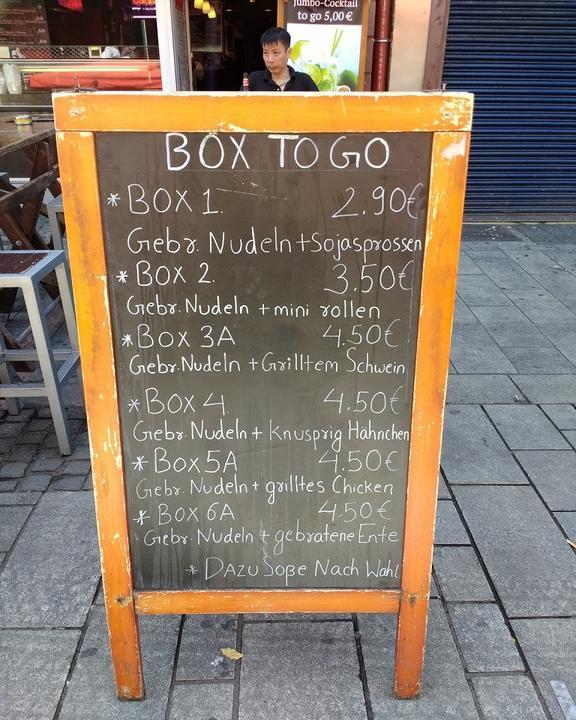 Jumbo-Cocktail
to go 5,00 €
BOX TO GO
* BOX 1. 2.90€
Gebr. Nudeln + Sojasprossen
* BOX 2. 3.50€
Gebr. Nudeln + mini rollen
* BOX 3A 4.50€
Gebr. Nudeln + Grilltem Schwein
* BOX 4. 4.50€
Gebr. Nudeln + Knusprig Hähnchen
* Box 5A 4.50€
Gebr. Nudeln + grilltes Chicken
* BOX 6A 4.50€
Gebr. Nudeln + gebratene Ente
* DAZU Soße Nach Wahl